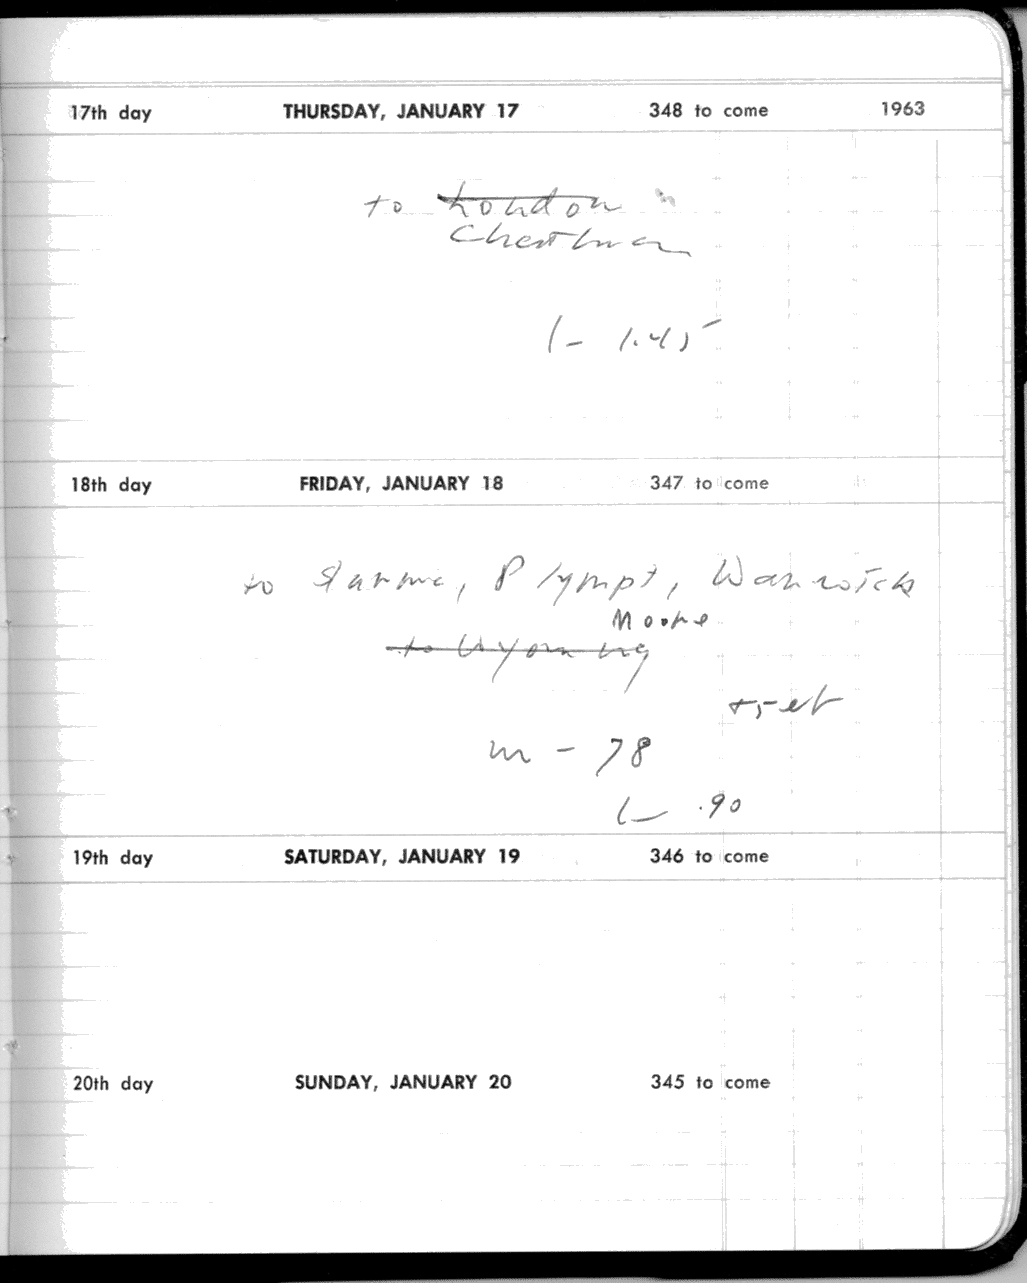 17th day THURSDAY, JANUARY 17 348 to come 1963
to London
l- 1.45
18th day FRIDAY, JANUARY 18 347 to come
to Plympt, Warwick
Moore
to Wyoming
m - 78
l- .90
19th day SATURDAY, JANUARY 19 346 to come
20th day SUNDAY, JANUARY 20 345 to come